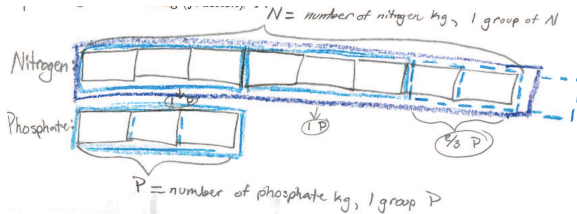 N = number of nitrogen kg, 1 group of N
Nitrogen:
1 P
1 P
2/3 P
Phosphate:
P = number of phosphate kg, 1 group P